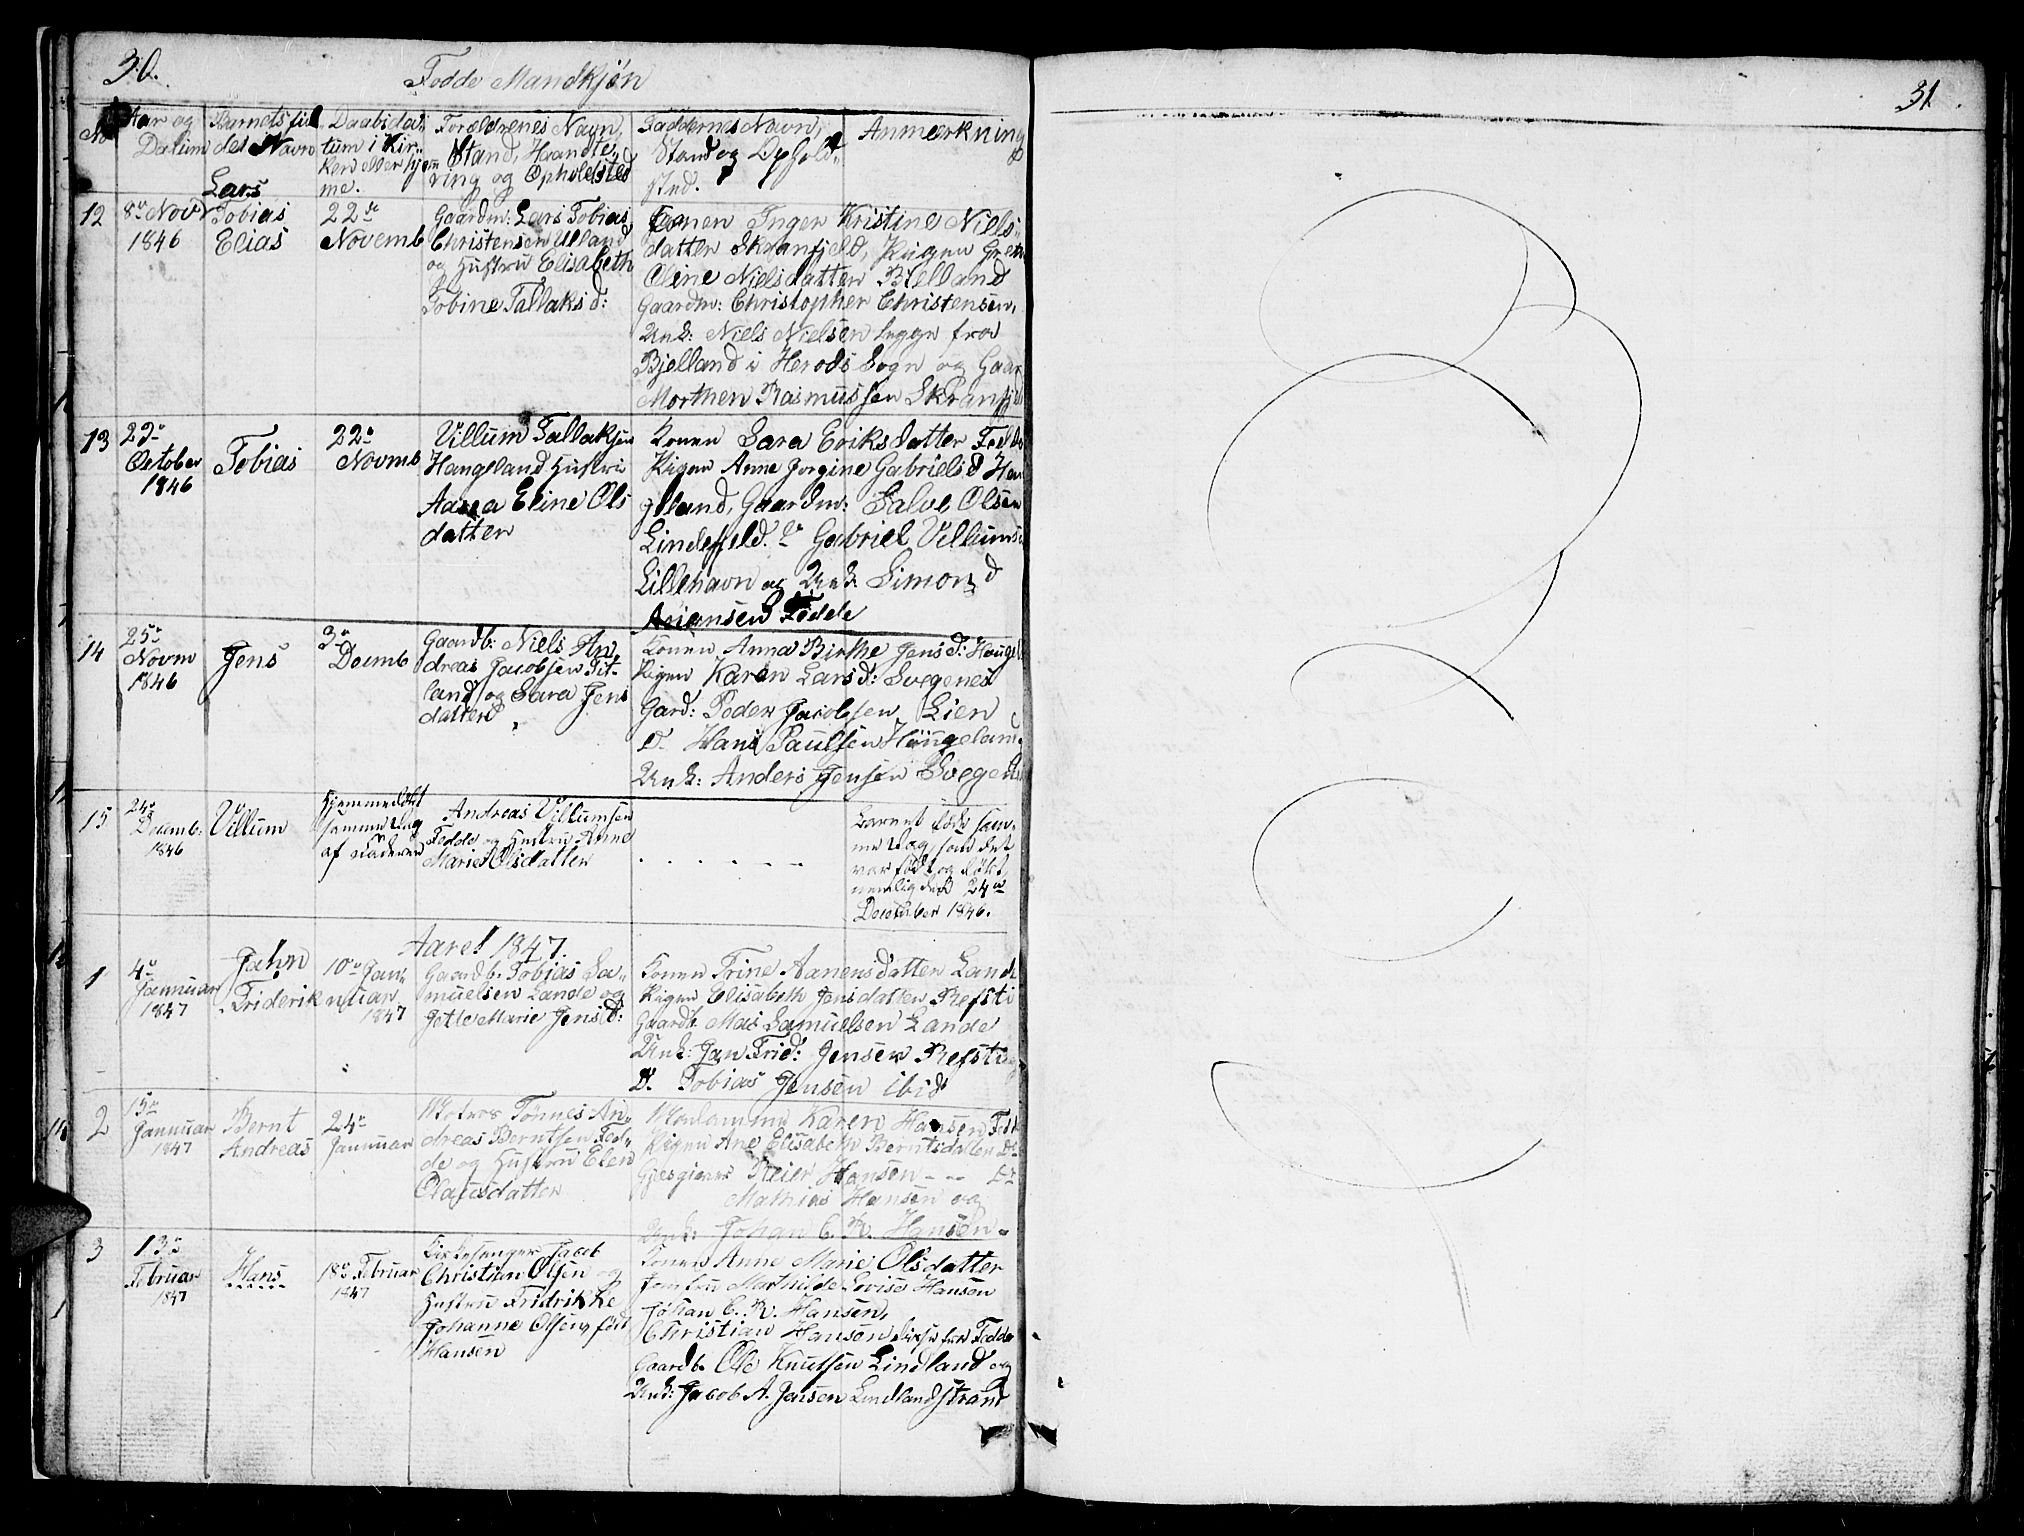 30.
Fødde Mandkjøn
No
Aar og
Datum
Barnets ful
des Navn
Daabsda„
tum i Kir„
ken eller hjem
me.
Forældrenes Navn,
Stand, Haandte„
ring og Opholdsted
Faddernes Navn,
Stand og Ophold„
sted.
Anmærkning
12
8de Novr
1846
Lars
Tobias
Elias
22de
Novemb
Gaardm: Lars Tobias
Christensen Ulland
og Hustru Elisabeth
Tobine Tallaks d:
Konen Inger Kristine Niels„
datter Skranfjeld, Pigen Grete
Oline Nielsdatter Bjelland
Gaardm: Christopher Christensen,
Unk: Niels Nielsen begge fra
Bjelland i Herods Sogn og Gaar
Morthen Rasmussen Skranfjeld
13
October
1846
Tobias
22de
Novmb
Villum Tallaksen
Hangeland Hustru
Aasa Eline Ols
datter
Konen Sara Eriksdatter Fedde
Pigen Anne Jorgine Gabriels d Han
gelland, Gaardm: Salve Olsen
Lindefjeld. Do Gabriel Villums
Lillehavn og Unk. Simon
Ariansen Fedde
14
25de
Novm
1846
Jens
3de
Decmb
Gaardb: Niels An„
dreas Jacobsen Tit„
land og Sara Jens
datter
Konen Anna Birthe Jens d: Haugel
Pigen Karen Lars d: Svegenes
Gard: Peder Jacobsen Lien
D. Hans Paulsen Haugeland
Unk: Anders Jensen Svegenes
15
24de
Decemb:
1846
Villum
Hjemmedøbt
samme Dag
af Faderen
Andreas Villumsen
Fedde og Hustru Anne
Marie Olsdatter
. . . . - - -
Barnet døde sam„
me Dag, som det
var født og døbt,
nemlig den 24de
December 1846.
Aaret 1847.
1
4de
Januar
1847
Jahn
Friderik
10de Jan„
1847
Gaardb. Tobias Sa„
muelsen Lande og
Jetle Marie Jens d:
Konen Trine Aanensdatter Lande
Pigen Elisabeth Jensdatter Refsti
Gaardb. Mas Samuelsen Lande
Unk: Jan Frid: Jensen Refsti
D. Tobias Jensen ibid
2
15de
Januar
1847
Bernt
Andreas
24de
Januar
Matros Tønnes An„
dreas Berntsen Fed„
de og Hustru Elen
Olausdatter
Madamme Karen Hansen Fedde
Pigen Ane Elisabeth Berntsdatter Do
Gjesgiver Reier Hansen - - Do
Mathias Hansen og
Unk: Johan C. R. Hansen„
3
13de
Februar
1847
Hans
18de Februar
1847
Kirkesanger Jacob
Christian Olsen og
Hustru Fridrikke
Johanne Olsen, fød
Hansen
Konen Anne Marie Olsdatter
Jomfru Mathilde Lovise Hansen
Johan C. R. Hansen,
Christian Hansen, Fedde
Gaardb. Ole Knutsen Lindland og
Unk: Jacob A. Jensen Lindlandstrand
31.